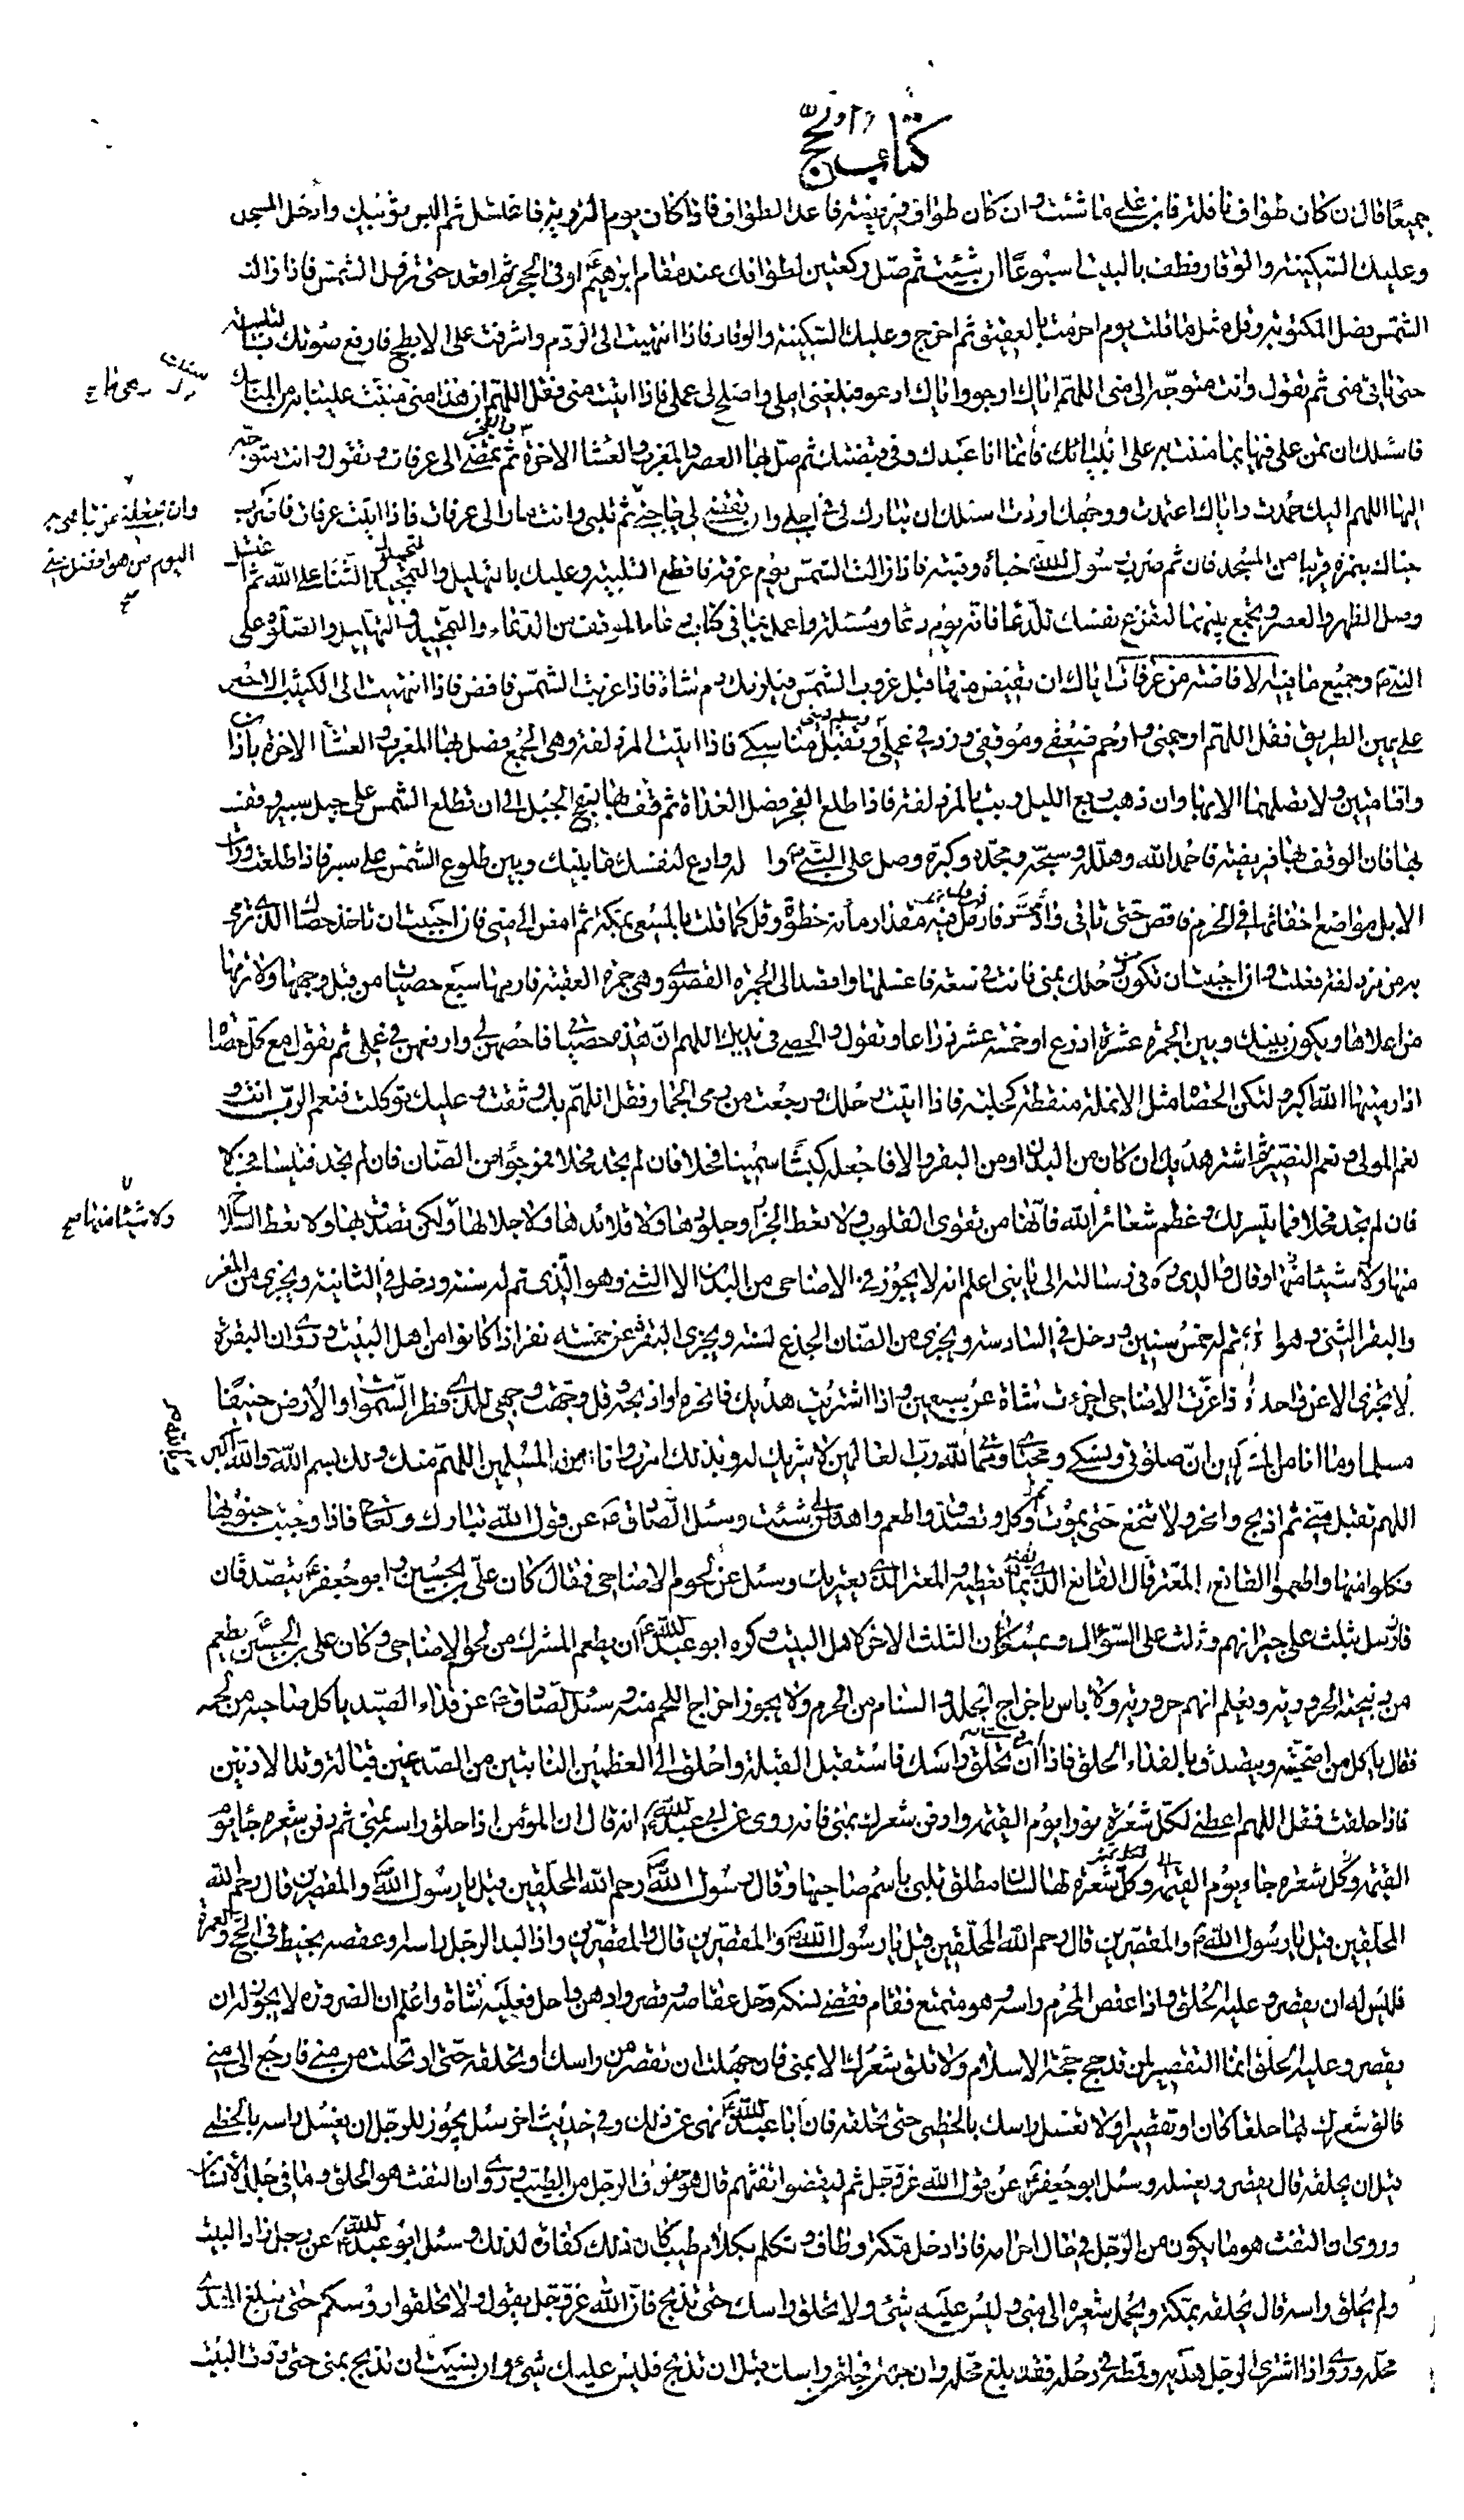 كتاب الحج
جميعًا قال ان كان طواف نافلة فابن على ما شئت وان كان طواف فريضة فاعد الطواف فاذا كان يوم التروية فاغتسل ثم البس ثوبيك وادخل المسجد
وعليك السكينة والوقار وطف بالبيت اسبوعًا ان شئت ثم صل ركعتين لطوافك عند مقام ابرهيم او في الحجر ثم اقعد حتى تزول الشمس فاذا زالت
الشمس فصل المكتوبة وقل مثل ما قلت يوم احرمت بالعقيق ثم اخرج وعليك السكينة والوقار فاذا انتهيت الى الردم واشرفت على الابطح فارفع صوتك بالتلبية
حتى تاتي منى ثم تقول وانت متوجه الى منى اللهم اياك ارجو واياك ادعو فبلغني املي واصلح لي عملي فاذا اتيت منى فقل اللهم ان هذا منى مننت علينا به من المناسك
فاسئلك ان تمن علي فيها بما مننت به على انبيائك فانما انا عبدك وفي قبضتك ثم صل بها العصر والمغرب والعشا الاخرة ثم تمضي الى عرفات وتقول وانت متوجه
اليها اللهم اليك صمدت واياك اعتمدت ووجهك اردت اسئلك ان تبارك لي في اجلي وان تقضي لي حاجتي ثم تلبي وانت مار الى عرفات فاذا اتيت عرفات فاضرب
خباك بنمرة قريبا من المسجد فان ثم ضرب رسول الله خباه وقبته فاذا زالت الشمس يوم عرفة فاقطع التلبية وعليك بالتهليل والتحميد والتمجيد والثنا على الله ثم اغتسل
وصل الظهر والعصر وتجمع بينهما لتفرغ نفسك للدعا فانه يوم دعا ومسئلة واعمل بما في كتاب دعا الموقف من الدعاء والتحميد والتهليل والصلوة على
النبي وجميع ما فيه الافاضة من عرفات اياك ان تفيض منها قبل غروب الشمس فيلزمك دم شاة فاذا غربت الشمس فافض فاذا انتهيت الى الكثيب الاحمر
على يمين الطريق فقل اللهم ارحمني وارحم ضعفي وموقفي وزد في عملي وسلم ديني وتقبل مناسكي فاذا اتيت المزدلفة وهي الجمع فصل بها المغرب والعشا الاخرة باذان
واقامتين ولا تصلهما الا بها وان ذهب ربع الليل وبت بالمزدلفة فاذا طلع الفجر فصل الغداة ثم قف بها بسفح الجبل الى ان تطلع الشمس على جبل ثبير وقف
بها فان الوقوف بها فريضة فاحمد الله وهلله وسبحه ومجده وكبره وصل على النبي واله وادع لنفسك ما بينك وبين طلوع الشمس على ثبير فاذا طلعت ورات
الابل مواضع اخفافها في الحرم فافض حتى تاتي وادي محسر فارمل فيه مقدار مائة خطوة وقل كما قلت بالمسعى بمكة ثم امض الى منى فان احببت ان تاخذ حصاك الذي ترمي
به من مزدلفة فعلت وان احببت ان تكون من رحلك بمنى فانت في سعة فاغسلها واقصد الى الجمرة القصوى وهي جمرة العقبة فارمها سبع حصيات من قبل وجهها ولا ترمها
من اعلاها ويكون بينك وبين الجمرة عشرة اذرع او خمسة عشر ذراعا وتقول والحصى في يديك اللهم ان هذه حصياتي فاحصهن لي وارفعهن في عملي ثم تقول مع كل حصاة
اذا رميتها الله اكبر ولتكن الحصاة مثل الانملة منقطة كحلية فاذا اتيت رحلك ورجعت من رمي الجمار فقل اللهم بك وثقت وعليك توكلت فنعم الرب انت و
نعم المولى ونعم النصير ثم اشتر هديك ان كان من البدن او من البقر والا فاجعله كبشًا سمينا فحلا فان لم تجد فحلا فموجوًا من الضان فان لم تجد فتيسا فحلا
فان لم تجد فحلا فما يتيسر لك وعظم شعائر الله فانها من تقوى القلوب ولا تعط الجزار جلودها ولا قلائدها ولا جلالها ولكن تصدق بها ولا تعط السلاخ
منها ولا شيئا منها وقال والدي ره في رسالته الي يا بني اعلم انه لا يجوز في الاضاحي من البدن الا الثني وهو الذي تم له سنة ودخل في الثانية ويجزي من المعز
والبقر الثني وهو الذي تم له خمس سنين ودخل في السادسة ويجزي من الضان الجذع لسنة ويجزي البقرة عن خمسة نفر اذا كانوا من اهل البيت وروي ان البقرة
لا تجزى الا عن واحد واذا عزت الاضاحي اجزءت شاة عن سبعين واذا اشتريت هديك فانحره او اذبحه وقل وجهت وجهي للذي فطر السموات والارض حنيفًا
مسلما وما انا من المشركين ان صلوتي ونسكي ومحياي ومماتي لله رب العالمين لا شريك له وبذلك امرت وانا من المسلمين اللهم منك ولك بسم الله والله اكبر
اللهم تقبل مني ثم اذبح وانحر ولا تنخع حتى يموت وكل وتصدق واطعم واهد الى من شئت وسئل الصادق عن قول الله تبارك وتعالى فاذا وجبت جنوبها
فكلوا منها واطعموا القانع والمعتر قال القانع الذي يقنع بما تعطيه والمعتر الذي يعتريك وسئل عن لحوم الاضاحي فقال كان علي بن الحسين وابو جعفر يتصدقان
فارسل بثلث على جيرانهم وثلث على السؤال ويمسكان الثلث الاخر لاهل البيت وكره ابو عبد الله ان يطعم المشرك من لحوم الاضاحي وكان علي بن الحسين يطعم
من ذبيحته الحرورية ويعلم انهم حرورية ولا باس باخراج الجلد والسنام من الحرم ولا يجوز اخراج اللحم منه وسئل الصادق عن فداء الصيد ياكل صاحبه من لحمه
فقال ياكل من اضحيته ويتصدق بالفداء الحلق فاذا اردت ان تحلق راسك فاستقبل القبلة واحلق الى العظمين النابتين من الصدغين قبالة وتد الاذنين
فاذا حلقت فقل اللهم اعطني لكل شعرة نورا يوم القيمة وادفن شعرك بمنى فانه روى عن ابي عبد الله انه قال ان المؤمن اذا حلق راسه بمنى ثم دفن شعره جاء يوم
القيمة وكل شعرة لها لسان مطلق تلبي باسم صاحبها وقال رسول الله رحم الله المحلقين قيل يا رسول الله والمقصرين قال رحم الله
المحلقين قيل يا رسول الله والمقصرين قال رحم الله المحلقين قيل يا رسول الله والمقصرين قال والمقصرين واذا لبد الرجل راسه او عقصه بخيط في الحج والعمرة
فليس له ان يقصر وعليه الحلق واذا عقص المحرم راسه وهو متمتع فقام فقضى نسكه وحل عقاصه وقصر وادهن واحل فعليه شاة واعلم ان الصرورة لا يجوز له ان
يقصر وعليه الحلق انما التقصير لمن قد حج حجة الاسلام ولا تلق شعرك الا بمنى فان جهلت ان تقصر من راسك او تحلقه حتى ارتحلت من منى فارجع الى منى
فالق شعرك بها حلقا كان او تقصيرا ولا تغسل راسك بالخطمي حتى تحلقه فان ابا عبد الله نهى عن ذلك وفي حديث اخر سئل يجوز للرجل ان يغسل راسه بالخطمي
قبل ان يحلقه قال يقصر ويغسله وسئل ابو جعفر عن قول الله عز وجل ثم ليقضوا تفثهم قال هو حفوف الرجل من الطيب وروي ان التفث هو الحلق وما في جلد الانسان
وروى ان التفث هو ما يكون من الرجل في حال احرامه فاذا دخل مكة وطاف وتكلم بكلام طيب كان ذلك كفارة لذلك وسئل ابو عبد الله عن رجل زار البيت
ولم يحلق راسه قال يحلقه بمكة ويحمل شعره الى منى وليس عليه شئ ولا تحلق راسك حتى تذبح فان الله عز وجل يقول ولا تحلقوا رؤسكم حتى يبلغ الهدي
محله وروي واذا اشترى الرجل هديه وقمطه في رحله فقد بلغ محله وان جهلت فحلقت راسك قبل ان تذبح فليس عليك شئ وان نسيت ان تذبح بمنى حتى زرت البيت